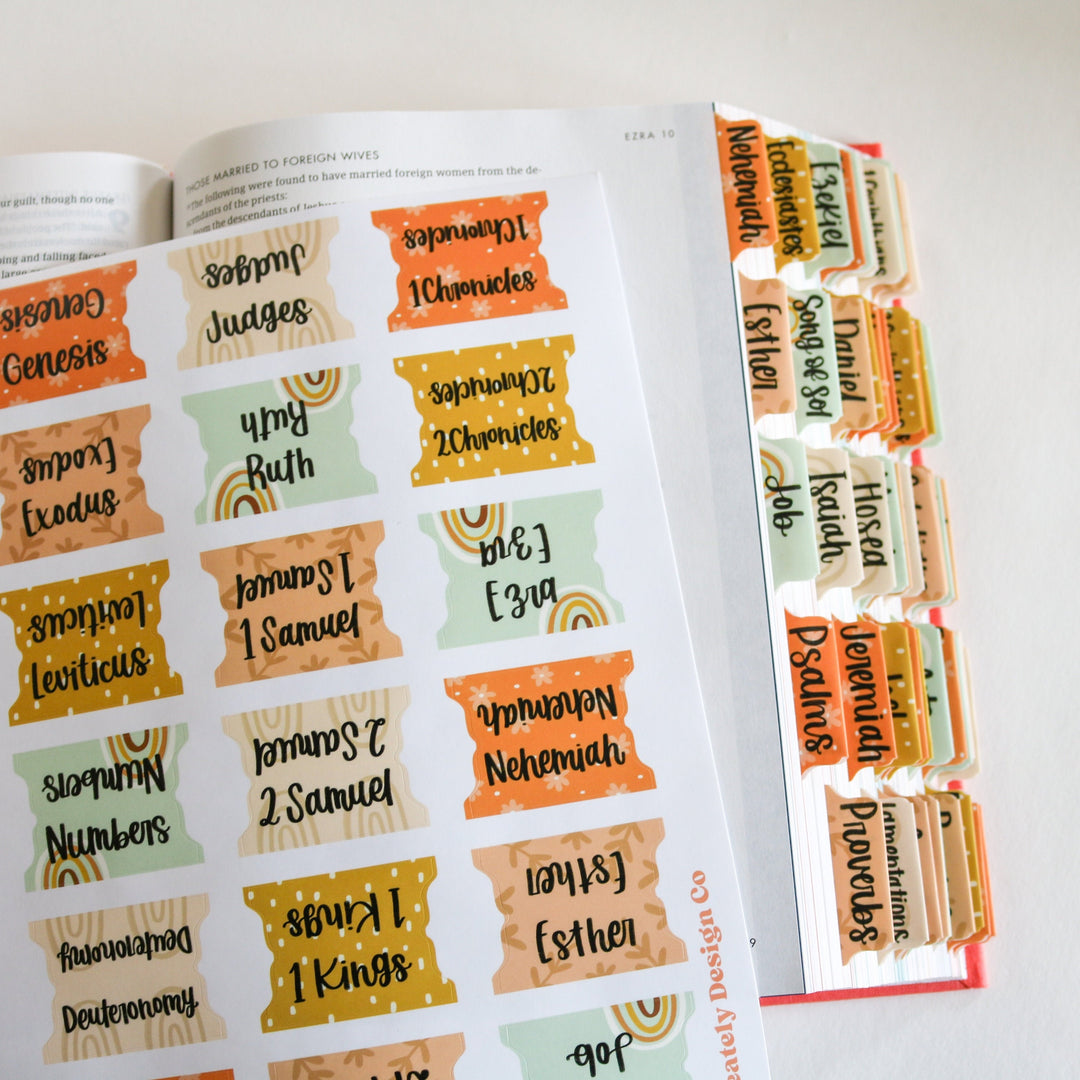 EZRA 10
THOSE MARRIED TO FOREIGN WIVES
The following were found to have married foreign women from the de-
scendants of the priests:
from the descendants of
ur guilt, though no one
ping and falling
large
Genesis
Genesis
Exodus
Exodus
Leviticus
Leviticus
Numbers
Numbers
Deuteronomy
Deuteronomy
Judges
Judges
Ruth
Ruth
1 Samuel
1 Samuel
2 Samuel
2 Samuel
1 Kings
1 Kings
1 Chronicles
1 Chronicles
2 Chronicles
2 Chronicles
Ezra
Ezra
Nehemiah
Nehemiah
Esther
Esther
Job
eately Design Co
9
Nehemiah
Ecclesiastes
Ezekiel
Esther
Song of Sol
Daniel
Job
Isaiah
Hosea
Psalms
Jeremiah
Joel
Proverbs
Lamentations